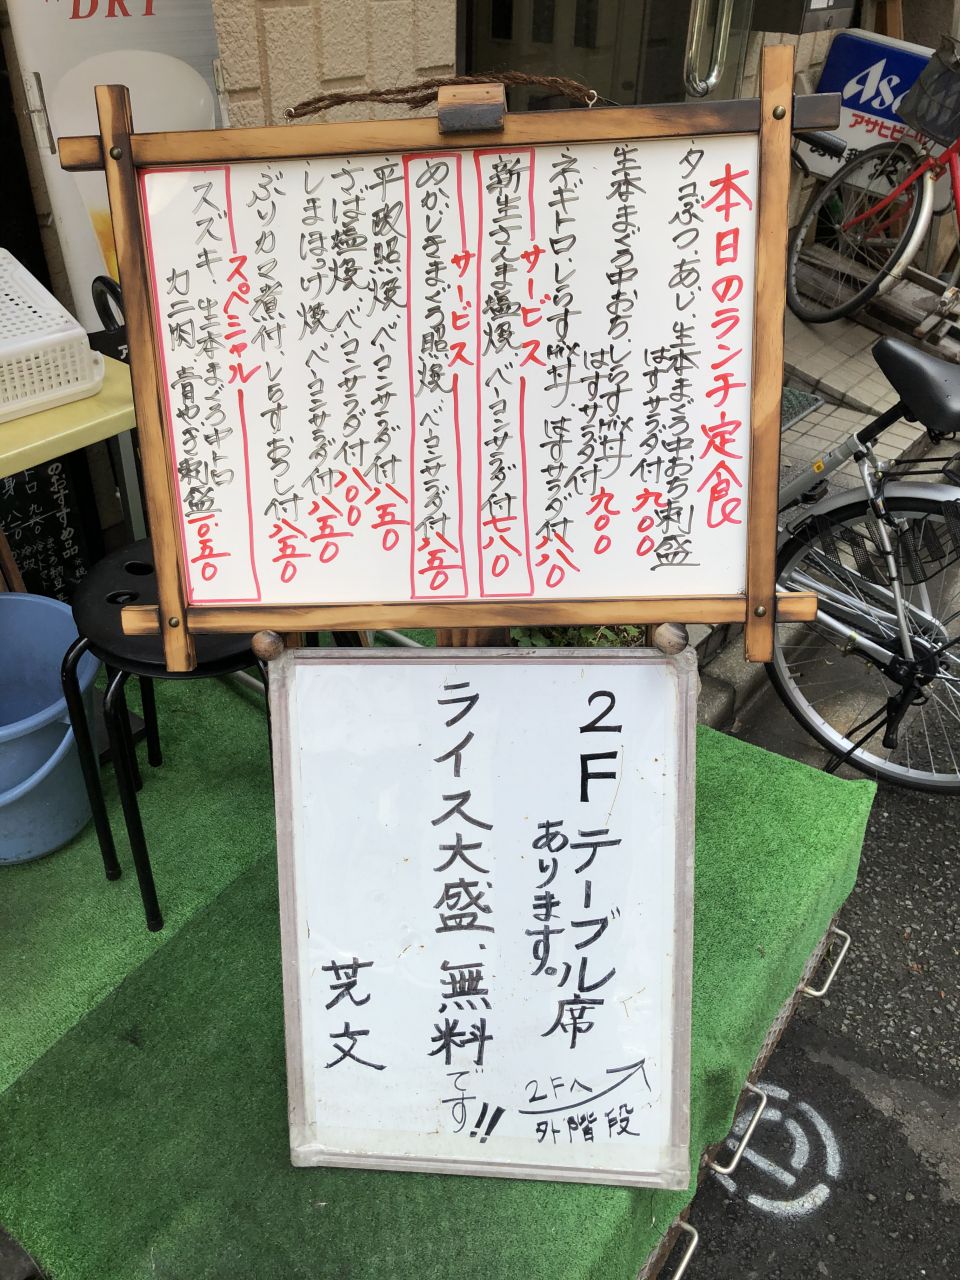 本日のランチ定食
タコぶつ、あじ、生本まぐろ中おち刺盛
はすサラダ付 九〇〇
生本まぐろ中おち、しらす
はすサラダ付 九〇〇
ネギトロ、しらす はすサラダ付 八八〇
サービス
新生さんま塩焼、ベーコンサラダ付 七八〇
サービス
めかじきまぐろ照焼 ベーコンサラダ付 八五〇
平政照焼、ベーコンサラダ付 八五〇
さば塩焼、ベーコンサラダ付 八〇〇
しまほっけ焼 ベーコンサラダ付 八五〇
ぶりカマ煮付、しらすおろし付 八五〇
スペシャル
スズキ、生本まぐろ中トロ
カニ肉 青やぎ刺盛 一〇五〇
2Fテーブル席
あります。
2Fへ
外階段
ライス大盛、無料です!!
芝文
"DRY
Asa
アサヒビール
のおすすめ品